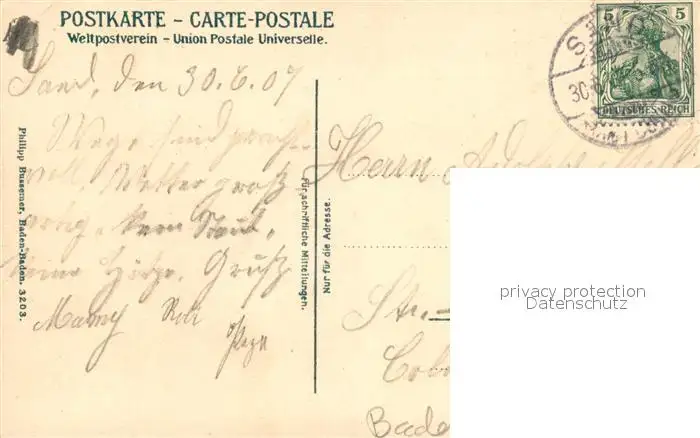 POSTKARTE – CARTE-POSTALE
Weltpostverein – Union Postale Universelle.
5 5
DEUTSCHES REICH
Sand, den 30.6.07
Wege sind pracht-
voll, Wetter groß
artig, kein Staub,
keine Hitze. Gruß
Mamy Rolf
Philipp Bussemer, Baden-Baden. 3203.
Für schriftliche Mitteilungen.
Nur für die Adresse.
Herrn Adolphe
Str.-
Bade
privacy protection
Datenschutz